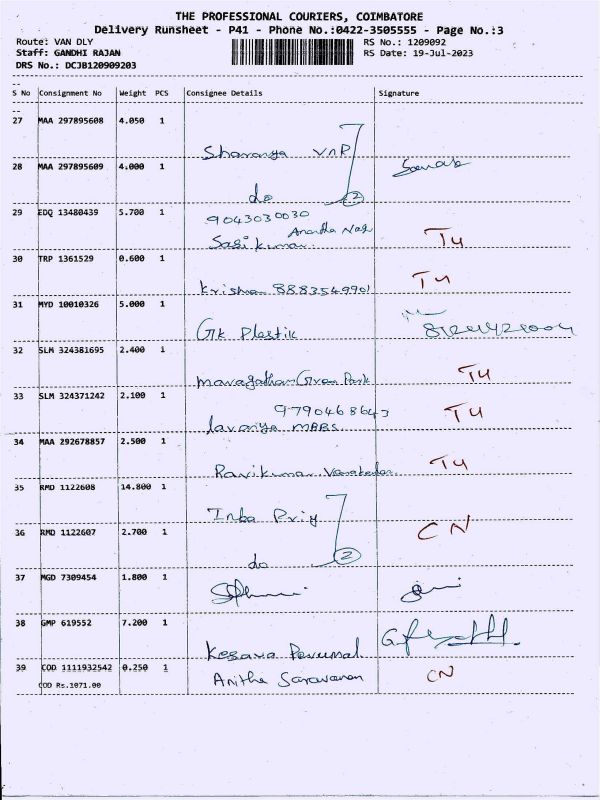 THE PROFESSIONAL COURIERS, COIMBATORE
Delivery Runsheet - P41 - Phone No.:0422-3505555 - Page No.:3
Route: VAN DLY RS No.: 1209092
Staff: GANDHI RAJAN RS Date: 19-Jul-2023
DRS No.: DCJB120909203
S No Consignment No Weight PCS Consignee Details Signature
27 MAA 297895608 4.050 1
Sharanya VNR
28 MAA 297895609 4.000 1
do 2
29 EDQ 13480439 5.700 1 9043030030
Anandha Nag
Sasi kumar TU
30 TRP 1361529 0.600 1 TU
Krishna 8883549901
31 MYD 10010326 5.000 1
GK Plastik
32 SLM 324381695 2.400 1 TU
33 SLM 324371242 2.100 1 9790468643 TU
lavanya MBBS
34 MAA 292678857 2.500 1 TU
Ravikumar
35 RMD 1122608 14.800 1
Inba Priy
36 RMD 1122607 2.700 1 CN
do 2
37 MGD 7309454 1.800 1
38 GMP 619552 7.200 1
Kesava Perumal
39 COD 1111932542 0.250 1 Anitha Saravanan CN
COD Rs.1071.00